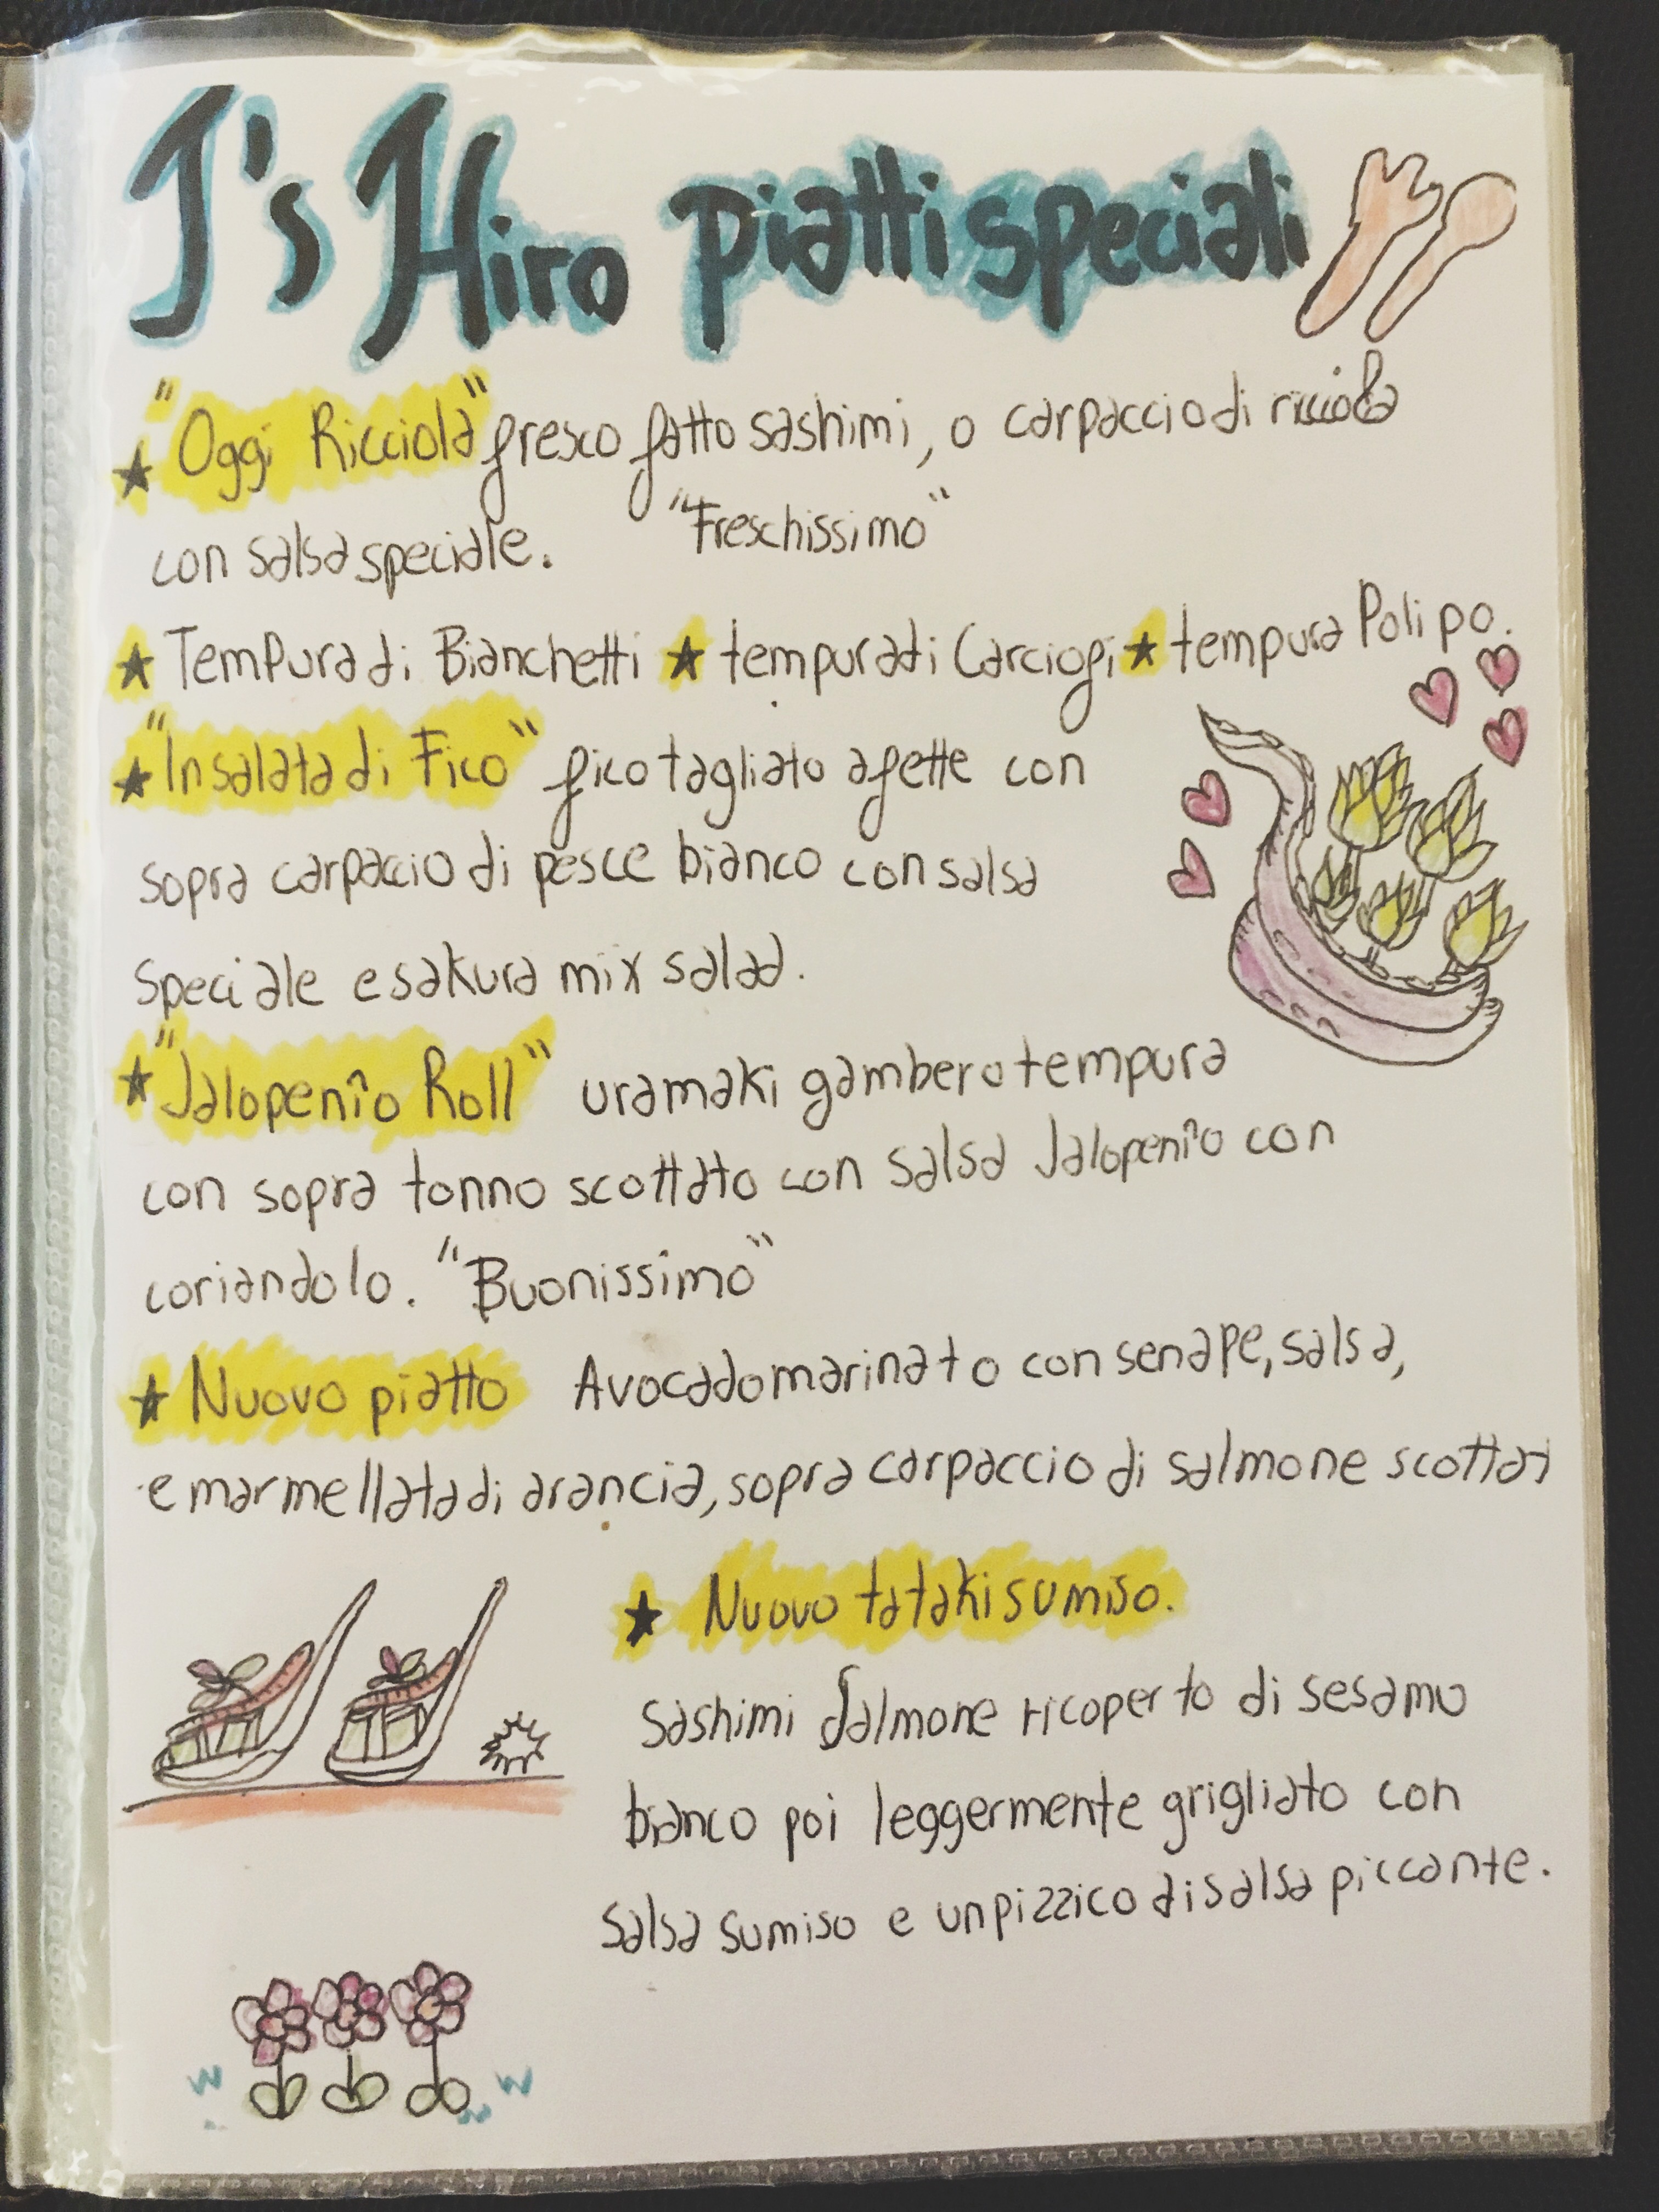 J's Hiro piatti speciali
★ "Oggi Ricciola" fresco fatto sashimi, o carpaccio di ricciola
con salsa speciale. "Freschissimo"
★ Tempura di Bianchetti ★ tempura di Carciofi ★ tempura Polipo.
★ "Insalata di Fico" fico tagliato a fette con
sopra carpaccio di pesce bianco con salsa
speciale e sakura mix salad.
★ "Jalopenîo Roll" uramaki gambero tempura
con sopra tonno scottato con salsa Jalopenîo con
coriandolo. "Buonissimo"
★ Nuovo piatto Avocado marinato con senape, salsa,
e marmellata di arancia, sopra carpaccio di salmone scottat
★ Nuovo tataki sumiso.
Sashimi Salmone ricoperto di sesamo
bianco poi leggermente grigliato con
salsa sumiso e un pizzico di salsa piccante.